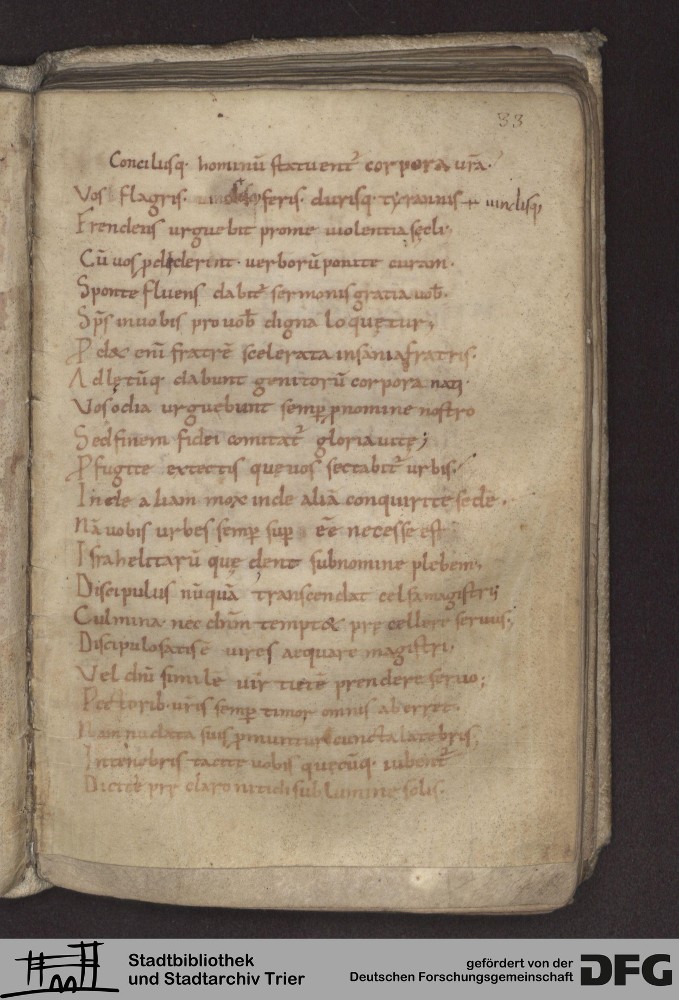 33
Conciliisq· hominū statuent᷒ corpora ur̄a·
Vos flagris· feris· durisq· tyrannis + uinclisq,
Frendens urguebit prome uiolentia sęcli·
Cū uos ꝑdiderint· uerborū ponite curam·
Sponte fluens dabit᷒ sermonis gratia uob̄·
Sp̄s in uobis pro uob̄ digna loquętur;
P dæ eni᷒ fratrē scelerata insania fratris·
Ad lętūq· dabunt genitorū corpora nati·
Vos odia urguebunt semꝑ ꝓ nomine nostro
Sed finem fidei comitat᷒ gloria uitę;
Pfugite ex tectis quę uos sectabit᷒ urbis·
Inde aliam mox inde aliā conquirite sedē·
Nā uobis urbes semꝑ suꝑ eē necesse est
Israhelitarū quę dent sub nomine plebem;
Discipulus nūquā transcendat celsa magistri;
Culmina· nec dn̄m temptet prę cellere seruus;
Discipulo satis ē uires aequare magistri·
Vel dn̄i similē prendere seruo;
Pectorib· ur̄is semꝑ timor omnis aberret·
Nam nudata suis ꝓmuntur cuncta latebris,
In tenebris tacite uobis quęcūq· iubent᷒
Dicite prę claro nitidi sub lumine solis·
Stadtbibliothek
und Stadtarchiv Trier
gefördert von der
Deutschen Forschungsgemeinschaft
DFG